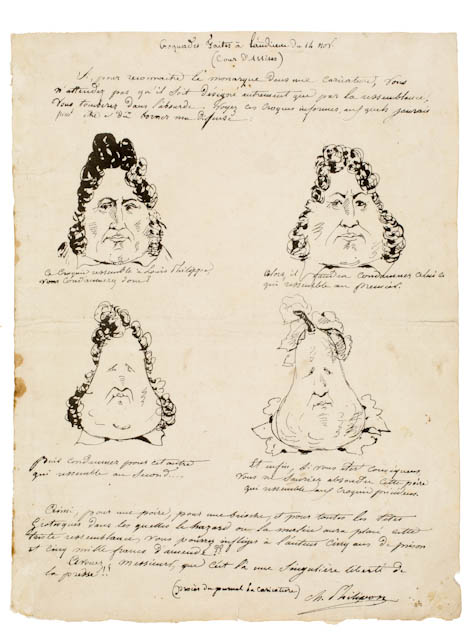 Croquades faites à l'audience du 14 Nov.
(Cour d'Assises)
Si, pour reconnaître le monarque dans une caricature, vous
n'attendez pas qu'il soit désigné autrement que par la ressemblance,
vous tomberez dans l'absurde. Voyez ces croquis informes, auxquels j'aurais
peut-être dû borner ma défense
Ce croquis ressemble à Louis Philippe,
vous condamnerez donc!
Alors il faudra condamner celui-ci
qui ressemble au premier.
Puis condamner pour cet autre
qui ressemble au second...
Et enfin, si vous êtes conséquens
vous ne sauriez absoudre cette poire
qui ressemble aux croquis précédens.
Ainsi, pour une poire, pour une brioche, et pour toutes les têtes
grotesques dans lesquelles le hazard ou la malice aura placé cette
triste ressemblance, vous pourrez infliger à l'auteur cinq ans de prison
et cinq mille francs d'amende??
Avouez, Messieurs, que c'est là une singulière liberté de
la presse!!
(procès du journal la caricature)
Ch. Philipon